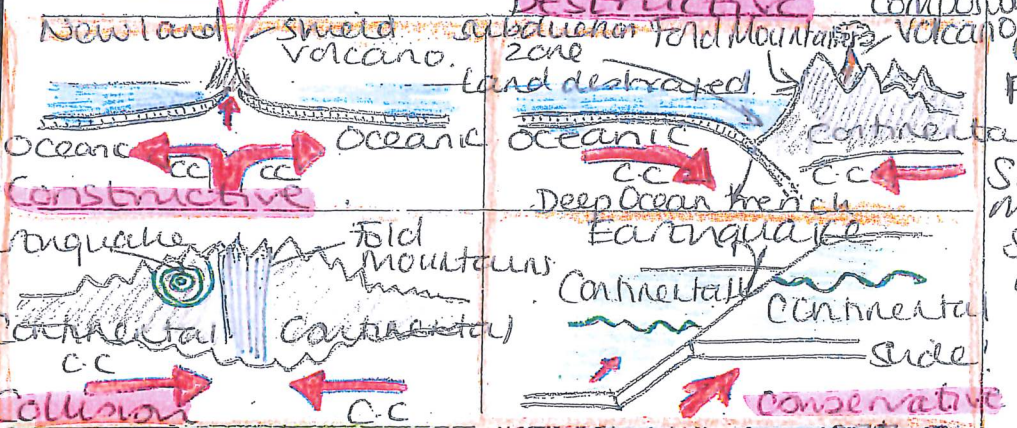 DESTRUCTIVE
New land
Shield
Volcano.
Oceanic
Oceanic
CC
CC
Constructive
Subduction
zone
Fold Mountains
Volcano
Land destroyed
Oceanic
C.C
C.C
Deep Ocean trench
Fold
Mountains
Continental
Continental
C.C
C.C
Collision
Earthquake
Continental
Continental
Slide!
Conservative